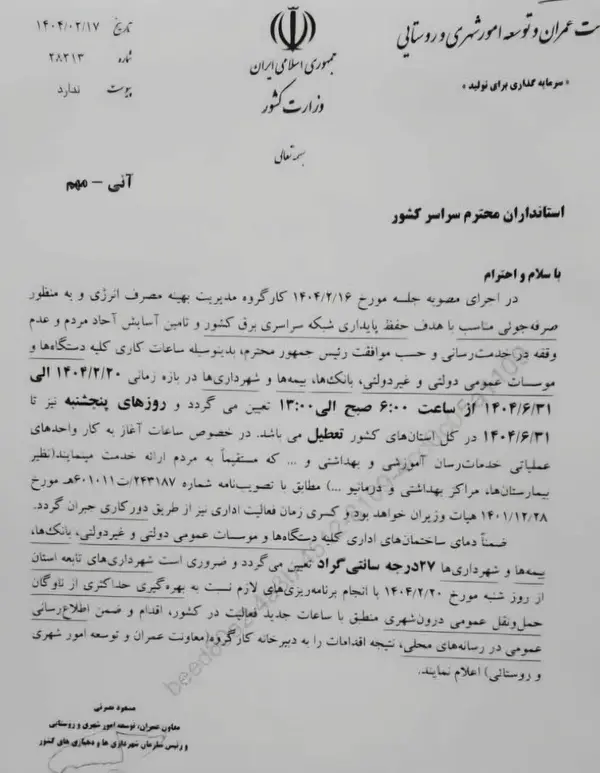 ت عمران و توسعه امور شهری و روستایی
«سرمایه گذاری برای تولید»
جمهوری اسلامی ایران
وزارت کشور
بسمه تعالی
تاریخ ۱۴۰۴/۰۲/۱۷
شماره ۲۸۲۱۳
پیوست ندارد
آنی - مهم
استانداران محترم سراسر کشور
با سلام و احترام
در اجرای مصوبه جلسه مورخ ۱۴۰۴/۲/۱۶ کارگروه مدیریت بهینه مصرف انرژی و به منظور
صرفه‌جوئی مناسب با هدف حفظ پایداری شبکه سراسری برق کشور و تامین آسایش آحاد مردم و عدم
وقفه در خدمت‌رسانی و حسب موافقت رئیس جمهور محترم، بدینوسیله ساعات کاری کلیه دستگاه‌ها و
موسسات عمومی دولتی و غیردولتی، بانک‌ها، بیمه‌ها و شهرداری‌ها در بازه زمانی ۱۴۰۴/۲/۲۰ الی
۱۴۰۴/۶/۳۱ از ساعت ۶:۰۰ صبح الی ۱۳:۰۰ تعیین می گردد و روزهای پنجشنبه نیز تا
۱۴۰۴/۶/۳۱ در کل استان‌های کشور تعطیل می باشد. در خصوص ساعات آغاز به کار واحدهای
عملیاتی خدمات‌رسان آموزشی و بهداشتی و ... که مستقیماً به مردم ارائه خدمت مینمایند(نظیر
بیمارستان‌ها، مراکز بهداشتی و درمانیو ...) مطابق با تصویب‌نامه شماره ۲۴۳۱۸۷/ت۶۰۱۰۱۱هـ مورخ
۱۴۰۱/۱۲/۲۸ هیات وزیران خواهد بود و کسری زمان فعالیت اداری نیز از طریق دورکاری جبران گردد.
ضمناً دمای ساختمان‌های اداری کلیه دستگاه‌ها و موسسات عمومی دولتی و غیردولتی، بانک‌ها،
بیمه‌ها و شهرداری‌ها ۲۷درجه سانتی‌گراد تعیین می‌گردد و ضروری است شهرداری‌های تابعه استان
از روز شنبه مورخ ۱۴۰۴/۲/۲۰ با انجام برنامه‌ریزی‌های لازم نسبت به بهره‌گیری حداکثری از ناوگان
حمل‌ونقل عمومی درون‌شهری منطبق با ساعات جدید فعالیت در کشور، اقدام و ضمن اطلاع‌رسانی
عمومی در رسانه‌های محلی، نتیجه اقدامات را به دبیرخانه کارگروه(معاونت عمران و توسعه امور شهری
و روستائی) اعلام نمایند.
مسعود نصرتی
معاون عمران، توسعه امور شهری و روستایی
و رئیس سازمان شهرداری ها و دهیاری های کشور